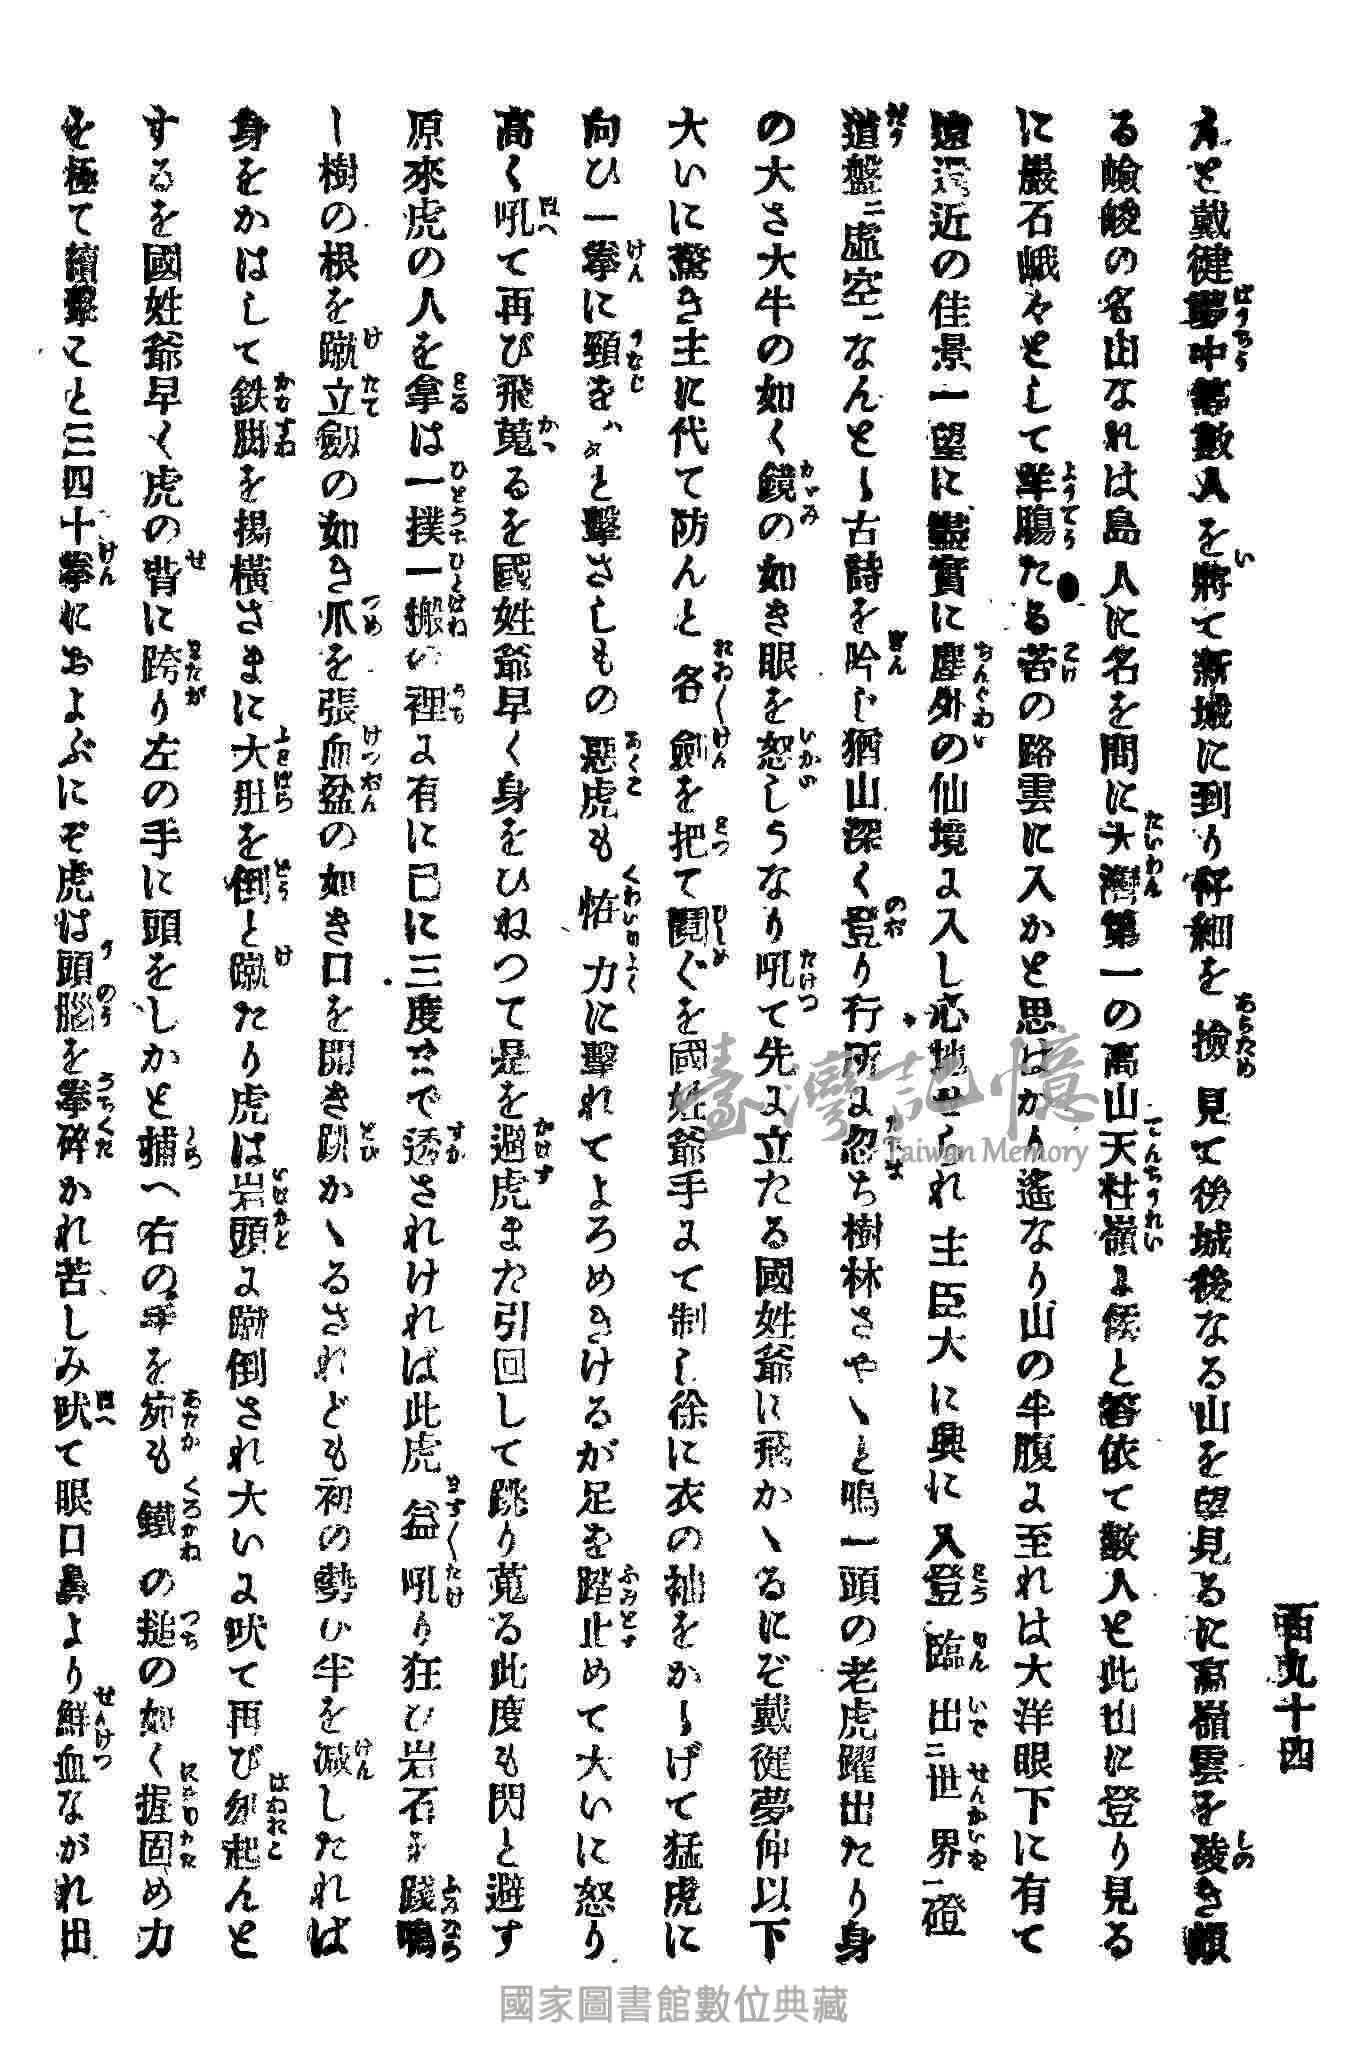 百九十四
んと戴健夢中等數人を將て新城に到り仔細を撿見て後城後なる山を望見るに高嶺雲を凌き頗
る嶮峻の名山なれは島人に名を問に大灣第一の高山天柱嶺よ候と答依て數人と此山に登り見る
に嚴石峨々として羊膓たる苔の路雲に入かと思はかり遙なり山の半腹よ至れは大洋眼下に有て
遠近の佳景一望に盡實に塵外の仙境よ入し心地せられ主臣大に興に入登臨出二世界一磴
道盤二虛空一なんと古詩を吟じ猶山深く登り行所よ忽ち樹林さやと鳴一頭の老虎躍出たり身
の大さ大牛の如く鏡の如き眼を怒しうなり吼て先よ立たる國姓爺に飛かゝるにぞ戴健夢仲以下
大いに驚き主に代て防んと各劍を把て鬩ぐを國姓爺手よて制し徐に衣の袖をかゝげて猛虎に
向ひ一拳に頸をハタと擊さしもの惡虎も恠力に擊れてよろめきけるが足を踏止めて大いに怒り
高く吼て再び飛蒐るを國姓爺早く身をひねつて是を避虎また引回して跳り蒐る此度も閃と避す
原來虎の人を拿は一撲一搬の裡よ有に已に三度まで透されければ此虎益吼り狂ひ岩石を踐鳴
し樹の根を蹴立劔の如き爪を張血盆の如き口を開き跳かゝるされども初の勢ひ半を減したれば
身をかはして鉄脚を揚橫さまに大肚を倒と蹴たり虎は岩頭よ蹴倒され大いよ吠て再び刎起んと
するを國姓爺早く虎の背に跨り左の手に頭をしかと捕へ右の手を宛も鐵の搥の如く握固め力
を極て續擊こと三四十拳におよぶにぞ虎は頭腦を拳碎かれ苦しみ吠て眼口鼻より鮮血ながれ出
臺灣記憶
Taiwan Memory
國家圖書館數位典藏